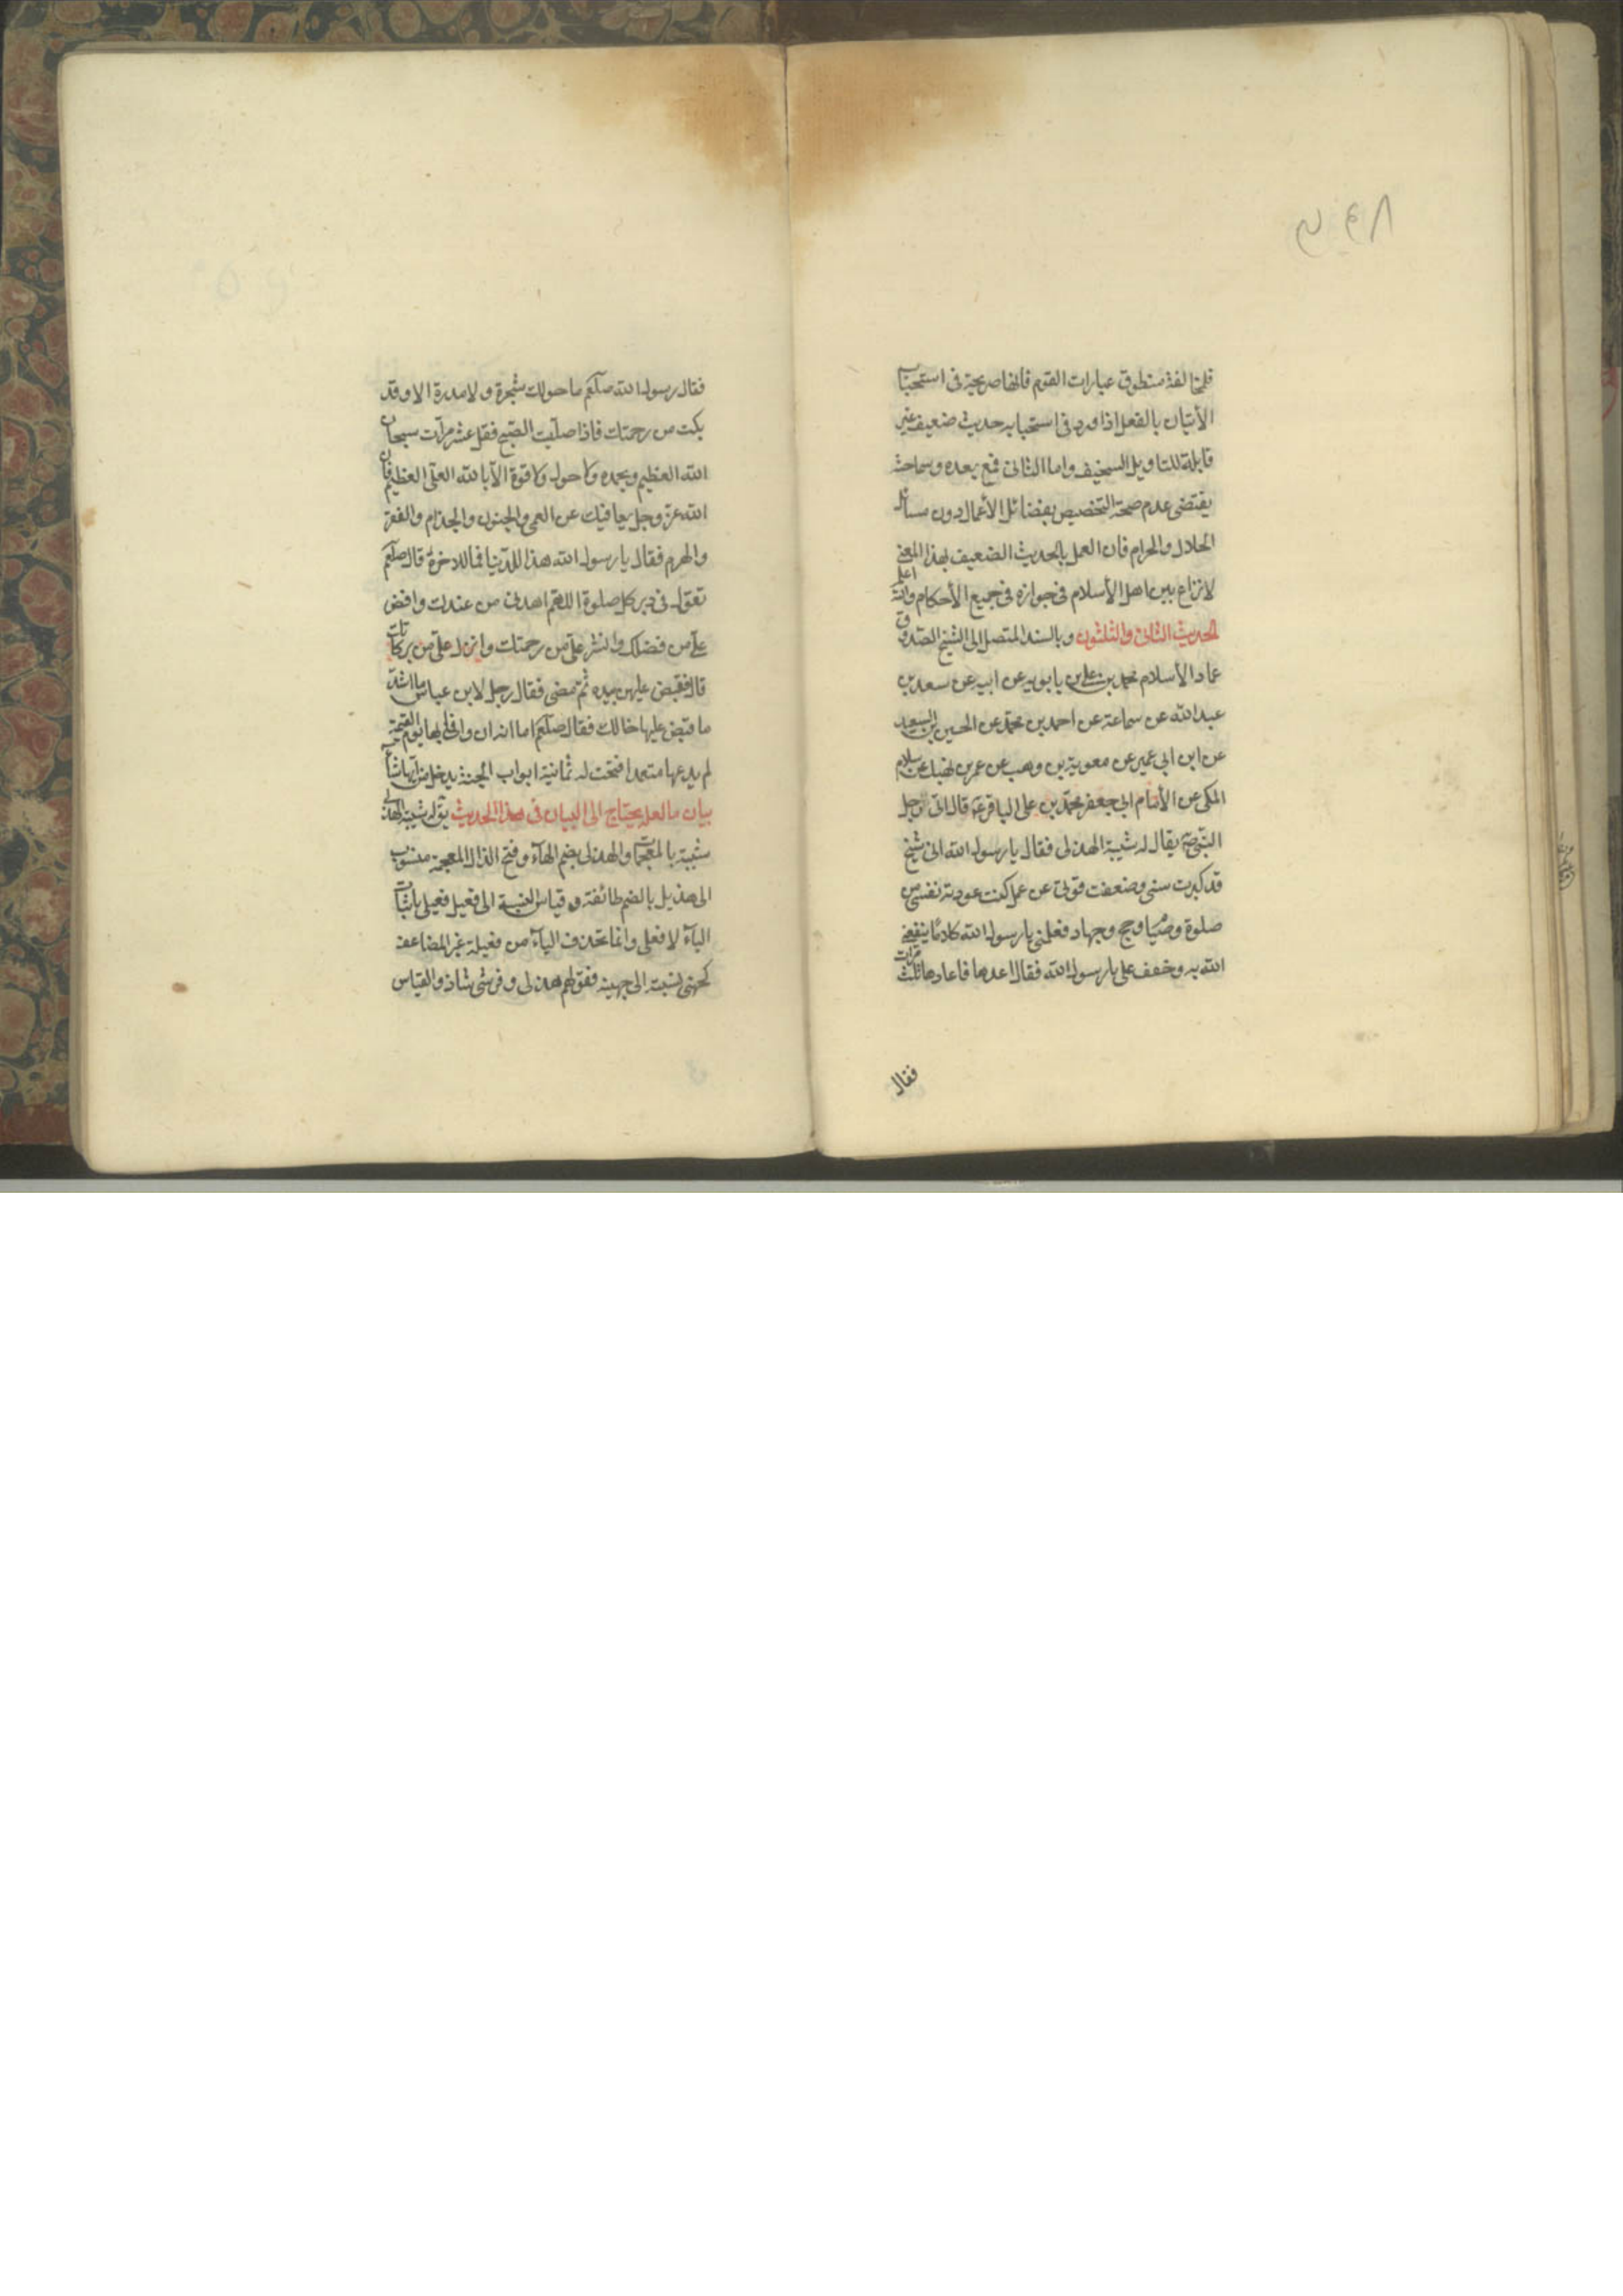 فلمخالفة منطوق عبارات القوم فانها صريحة فى استحباب
الأتيان بالفعل اذا ورد فى استحبابه حديث ضعيف غير
قابلة للتاويل السخيف واما الثانى فمع بعده وسماحته
يقتضى عدم صحة التخصيص بفضائل الأعمال دون مسائل
الحلال والحرام فان العمل بالحديث الضعيف بهذا المعنى
لا نزاع بين اهل الأسلام فى جوازه فى جميع الأحكام والله اعلم
الحديث الثانى والثلثون وبالسند المتصل الى الشيخ الصدوق
عماد الأسلام محمد بن على بن بابويه عن ابيه عن سعد بن
عبد الله عن سماعة عن احمد بن محمد عن الحسين بن السعيد
عن ابن ابى عمير عن معوية بن وهب عن عمر بن نهيك عن سلام
المكى عن الأمام ابى جعفر محمد بن على الباقر ع قال اتى رجل
النبى ص يقال له شيبة الهذلى فقال يا رسول الله انى شيخ
قد كبرت سنى وضعفت قوتى عن عمل كنت عودته نفسى من
صلوة وصيام وحج وجهاد فعلمنى يا رسول الله كلاما ينفعنى
الله به وخفف على يا رسول الله فقال اعدها فاعادها ثلث مرات
فقال
فقال رسول الله صلعم ما حولك شجرة ولا مدرة الا وقد
بكت من رحمتك فاذا صليت الصبح فقل عشر مرات سبحان
الله العظيم وبحمده ولا حول ولا قوة الا بالله العلى العظيم فان
الله عز وجل يعافيك عن العمى والجنون والجذام والفقر
والهرم فقال يا رسول الله هذا للدنيا فما للاخرة قال صلعم
تقول فى دبر كل صلوة اللهم اهدنى من عندك وافض
على من فضلك وانشر على من رحمتك وانزل على من بركاتك
قال فقبض عليهن بيده ثم مضى فقال رجل لابن عباس ما اشد
ما قبض عليها خالك فقال صلعم اما انه ان وافى بها يوم القيمة
لم يدعها متعمدا فتحت له ثمانية ابواب الجنة يدخل من ايها شاء
بيان ما لعله يحتاج الى البيان فى هذا الحديث يقال له شيبة الهذلى
شيبة بالمعجمات والهذلى بضم الهاء وفتح الذال المعجمة منسوب
الى هذيل بالضم طائفة وقياس النسبة الى فعيل فعيلى باثبات
الياء لا فعلى وانما تحذف الياء من فعيلة غير المضاعف
كجهنى نسبته الى جهينة فقولهم هذلى وقرشى شاذ والقياس